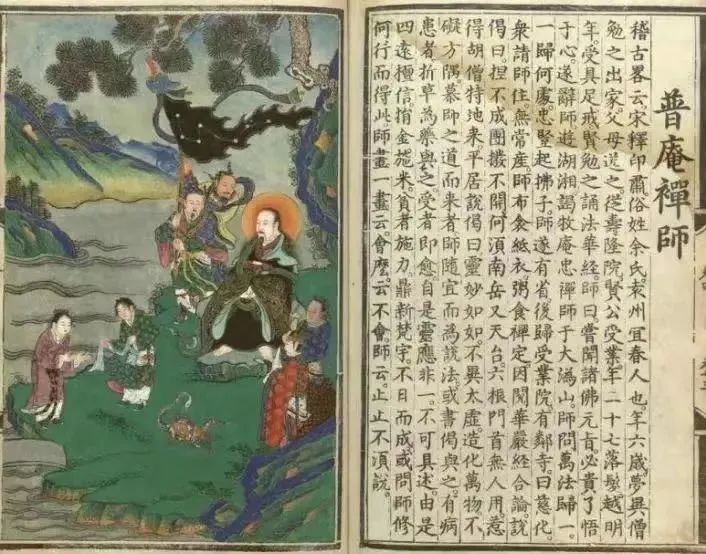 普庵禪師
稽古畧云宋釋印肅俗姓余氏袁州宜春人也年六歲夢異僧
勉之出家父母送之從壽隆院賢公受業年二十七落髮越明
年受具足戒賢勉之誦法華經師曰嘗聞諸佛元旨必貴了悟
于心遂辭師遊湖湘謁牧庵忠禪師于大溈山師問萬法歸一
一歸何處忠豎起拂子師遂有省後歸受業院有鄰寺曰慈化
衆請師住無常産師布衾紙衣粥食禪定因閱華嚴經合論說
偈曰捏不成團撥不開何湏南岳又天台六根門首無人用惹
得胡僧特地来平居說偈曰靈妙如如不異太虛造化萬物不
礙方隅慕師之道而来者師隨宜而為說法或書偈與之有病
患者折草為藥與之受者即愈自是靈應非一不可具述由是
四遠檀信捐金施米貧者施力鼎新梵宇不日而成或問師修
何行而得此師畫一畫云會麽云不會師云止止不湏說